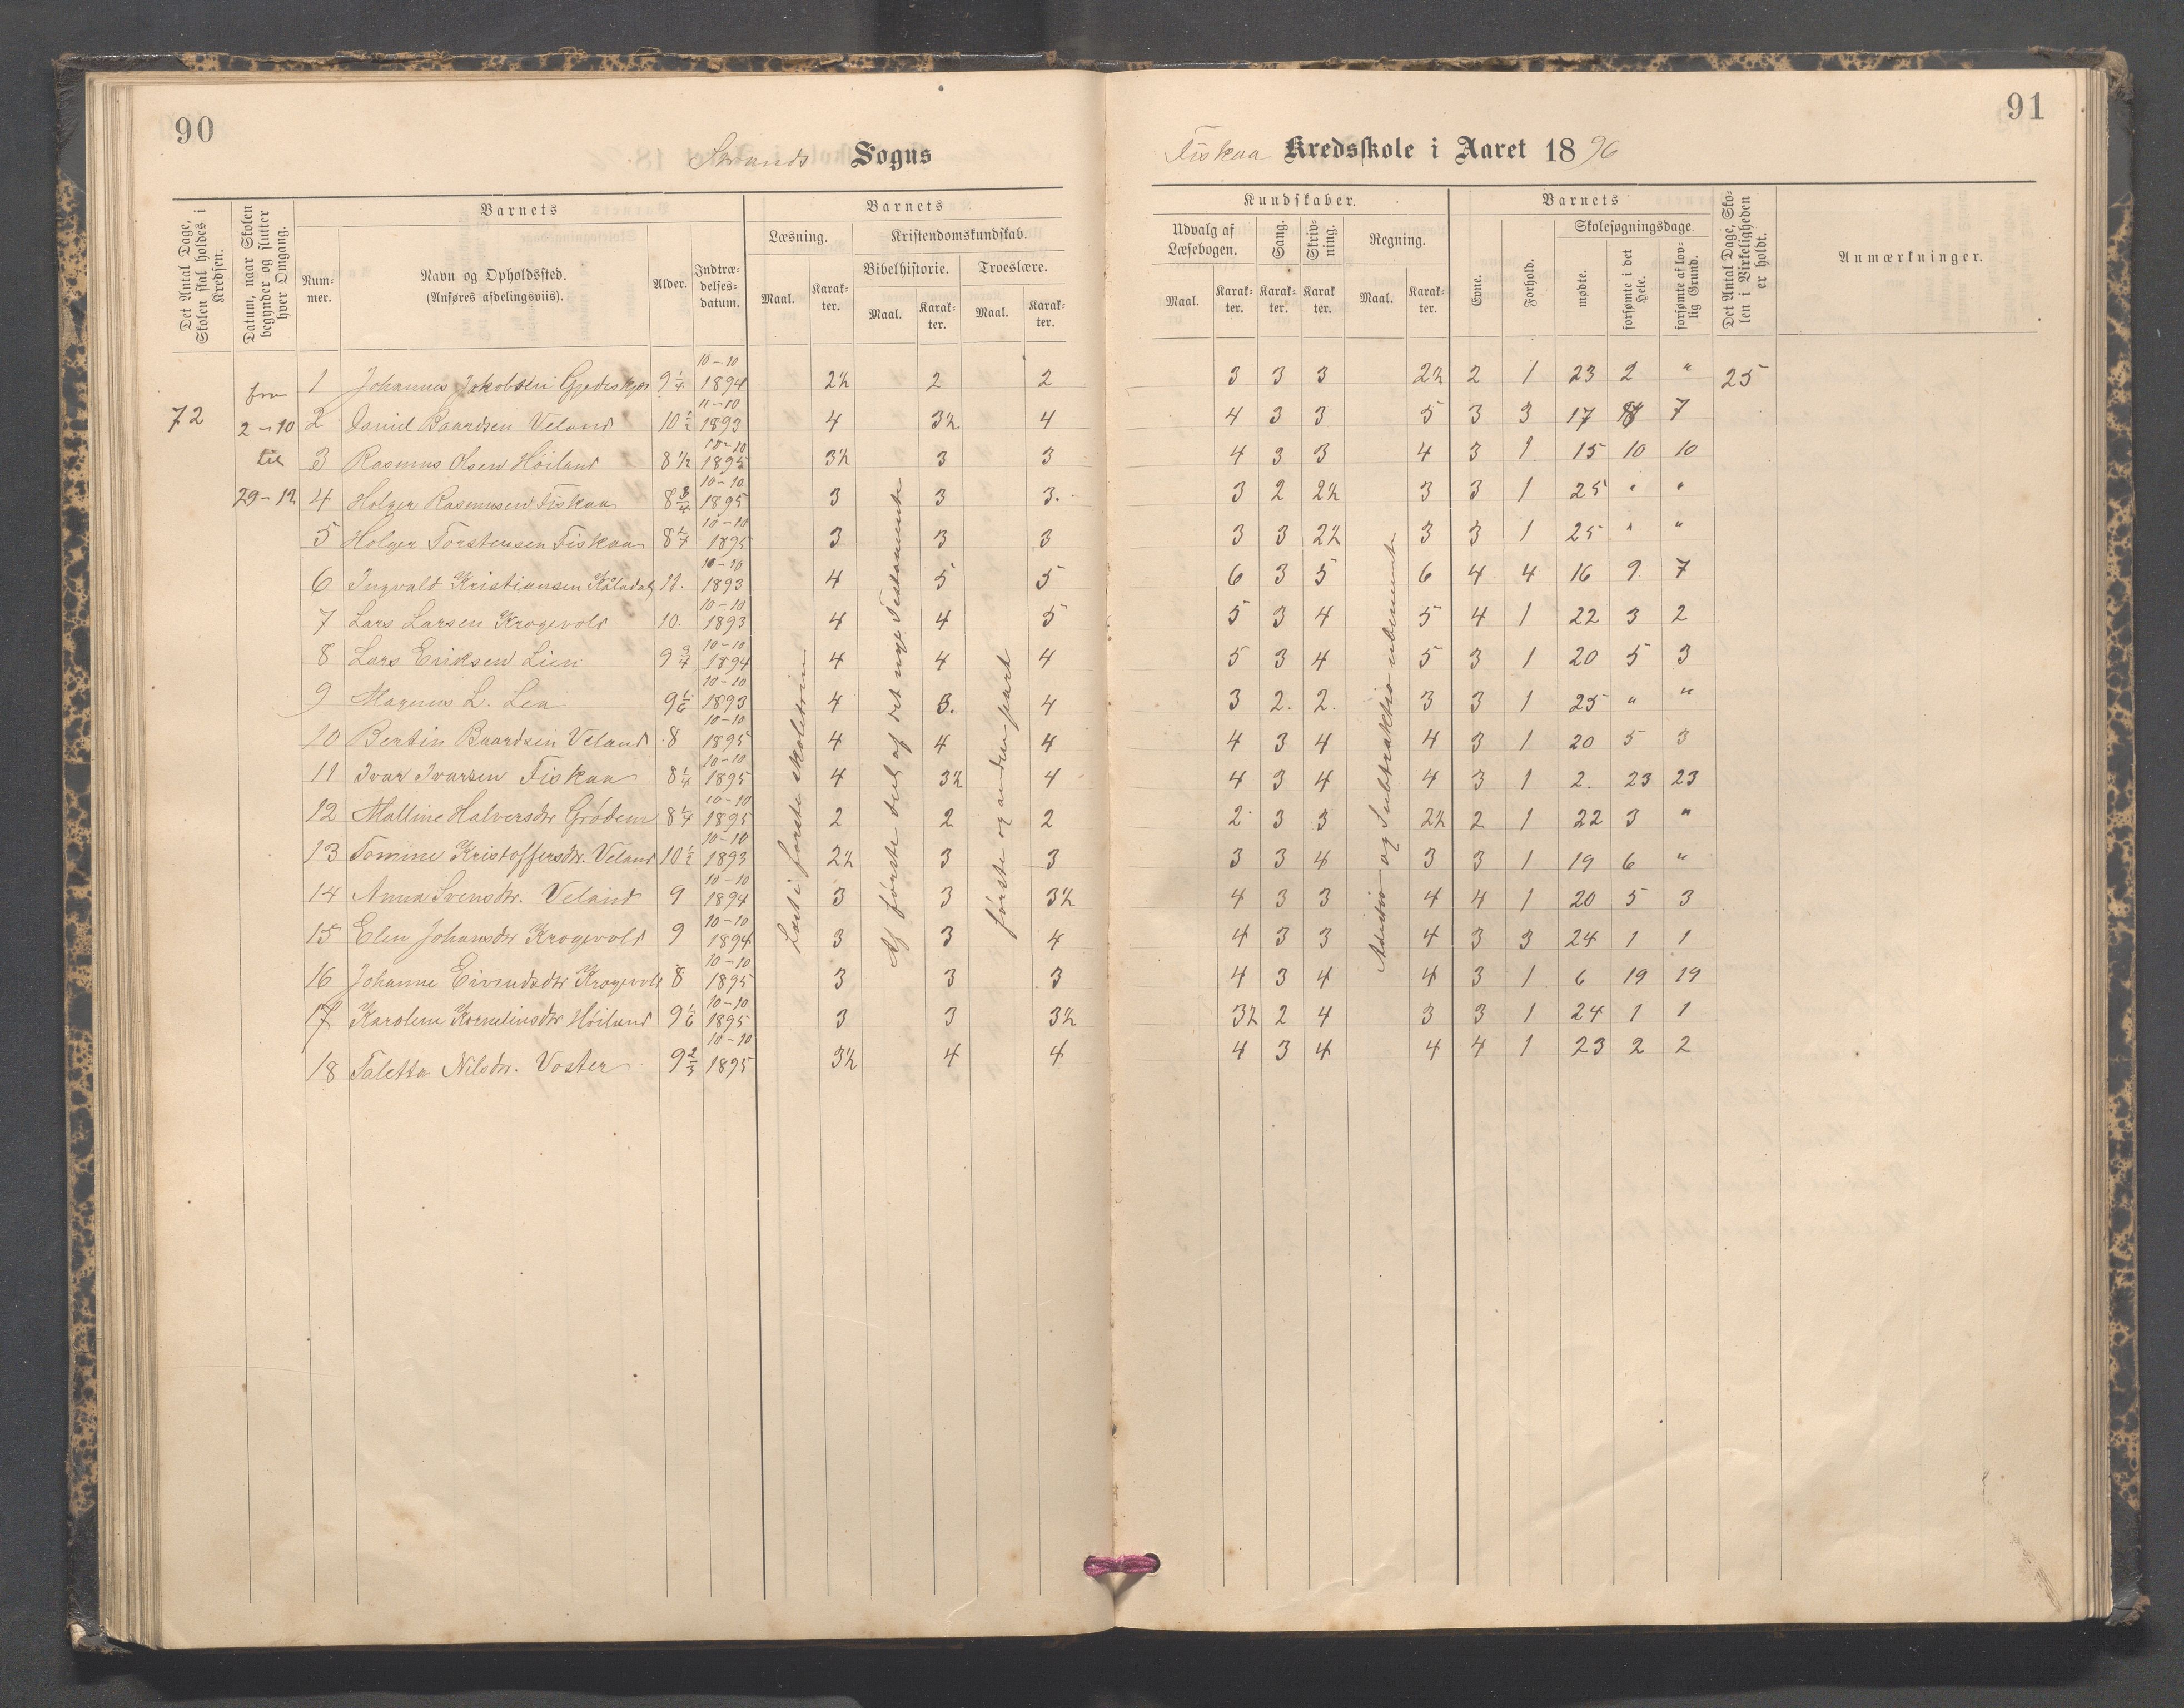 90
Strands Sogns
Det Antal Dage, Skolen skal holdes i Kredsen.
Datum, naar Skolen begynder og slutter hver Omgang.
Barnets
Num-mer.
Navn og Opholdssted.
(Anføres afdelingsviis).
Alder.
Indtræ-delses-datum.
Barnets
Læsning.
Kristendomskundskab.
Bibelhistorie.
Troeslære.
Maal.
Karak-ter.
Maal.
Karak-ter.
Maal.
Karak-ter.
72
fra
2-10
til
29-12
1 Johannes Jakobsen 9 1/4 10-10 1894 2½ 2 2
2 Daniel Baardsen Veland 10 1/2 11-10 1893 4 3½ 4
3 Rasmus Olsen Höiland 8 1/2 10-10 1895 3½ 3 3
4 Holger Rasmussen Fiskaa 8 3/4 10-10 1895 3 3 3.
5 Holger Torstensen Fiskaa 8 1/4 10-10 1895 3 3 3
6 Ingvald Kristiansen 11. 10-10 1893 4 5 5
7 Lars Larsen Krogevold 10. 10-10 1893 4 4 5
8 Lars Eriksen Lien 9 3/4 10-10 1894 4 4 4
9 Magnus L. Lea 9 1/6 10-10 1893 4 3. 4
10 Bertin Baardsen Veland 8 10-10 1895 4 4 4
11 Ivar Ivarsen Fiskaa 8 1/4 10-10 1895 4 3½ 4
12 Malline Halversdtr Grödem 8 1/4 10-10 1895 2 2 2
13 Tomine Kristoffersdtr. Veland 10 1/2 10-10 1893 2½ 3 3
14 Anna Svensdtr. Veland 9 10-10 1894 3 3 3½
15 Elen Johansdtr Krogevold 9 10-10 1894 3 3 4
16 Johanne Eivindsdtr Krogevold 8 10-10 1895 3 3 3
17 Karoline Korneliusdtr Höiland 9 1/6 10-10 1895 3 3 3½
18 Taletta Nilsdtr. Voster 9 2/3 10-10 1895 3½ 4 4
Læst i første skoletrin
Af første deel af det nye Testamente
første og anden part
91
Fiskaa Kredsskole i Aaret 1896
Kundskaber.
Udvalg af Læsebogen.
Sang.
Skriv-ning.
Regning.
Maal.
Karak-ter.
Karak-ter.
Karak-ter.
Maal.
Karak-ter.
Barnets
Evne.
Forhold.
Skolesøgningsdage.
mødte.
forsømte i det Hele.
forsømte af lov-lig Grund.
Det Antal Dage, Sko-len i Virkeligheden er holdt.
Anmærkninger.
3 3 3 2½ 2 1 23 2 " 25
4 3 3 5 3 3 17 8 7
4 3 3 4 3 1 15 10 10
3 2 2½ 3 3 1 25 " "
3 3 2½ 3 3 1 25 " "
6 3 5 6 4 4 16 9 7
5 3 4 5 4 1 22 3 2
5 3 4 5 3 1 20 5 3
3 2. 2. 3 3 1 25 " "
4 3 4 4 3 1 20 5 3
4 3 4 4 3 1 2. 23 23
2 3 3 2½ 2 1 22 3 "
3 3 4 3 3 1 19 6 "
4 3 3 4 4 1 20 5 3
4 3 3 4 3 3 24 1 1
4 3 4 4 3 1 6 19 19
3½ 2 4 3 3 1 24 1 1
4 3 4 4 4 1 23 2 2
Addition og Subtraktion ubenævnt